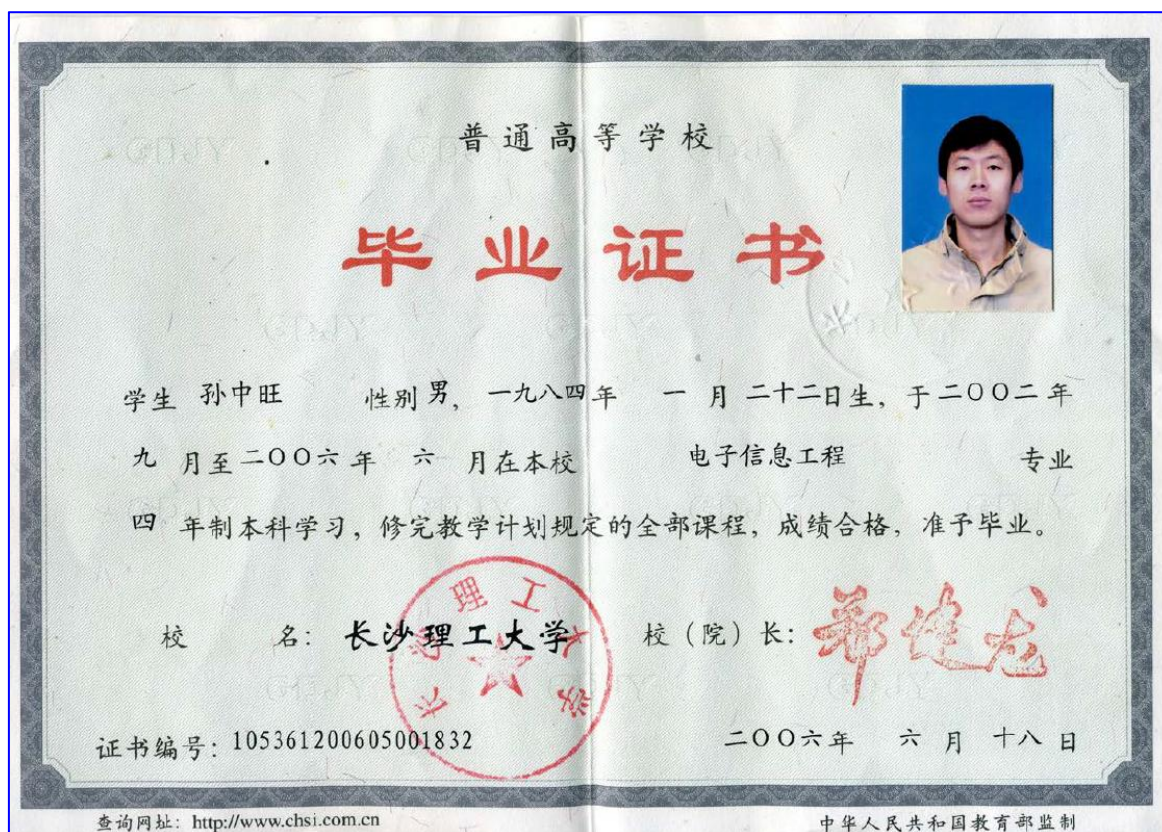 普通高等学校
毕业证书
学生 孙中旺 性别 男，一九八四年 一 月 二十二日生，于二〇〇二年
九 月至二〇〇六年 六 月在本校 电子信息工程 专业
四 年制本科学习，修完教学计划规定的全部课程，成绩合格，准予毕业。
校 名：长沙理工大学 校（院）长：郑健龙
长沙理工大学
证书编号：105361200605001832 二〇〇六年 六 月 十八 日
查询网址：http://www.chsi.com.cn 中华人民共和国教育部监制